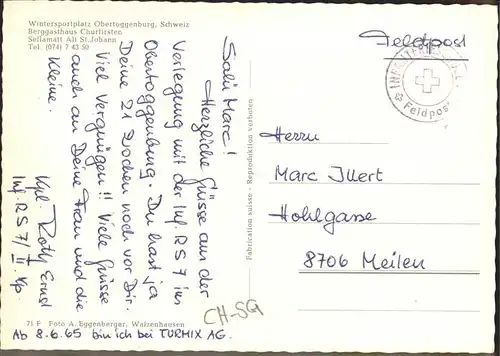 Wintersportplatz Obertoggenburg, Schweiz
Berggasthaus Churfirsten
Sellamatt Alt St.Johann
Tel. (074) 7 43 50
Salü Marc!
Herzliche Grüsse aus der
Verlegung mit der Inf. RS 7 im
Obertoggenburg. Du hast ja
Deine 21 Wochen noch vor Dir.
Viel Vergnügen!! Viele Grüsse
auch an Deine Frau und die
Kleine.
Kpl. Roth Ernst
Inf. RS 7/ II Kp.
71 F Foto A. Eggenberger, Walzenhausen
Ab 8.6.65 bin ich bei TURMIX AG.
CH-SG
Fabrication suisse - Reproduktion verboten
Feldpost
INFANTERIE
Feldpost
Herrn
Marc Illert
Hohlgasse
8706 Meilen